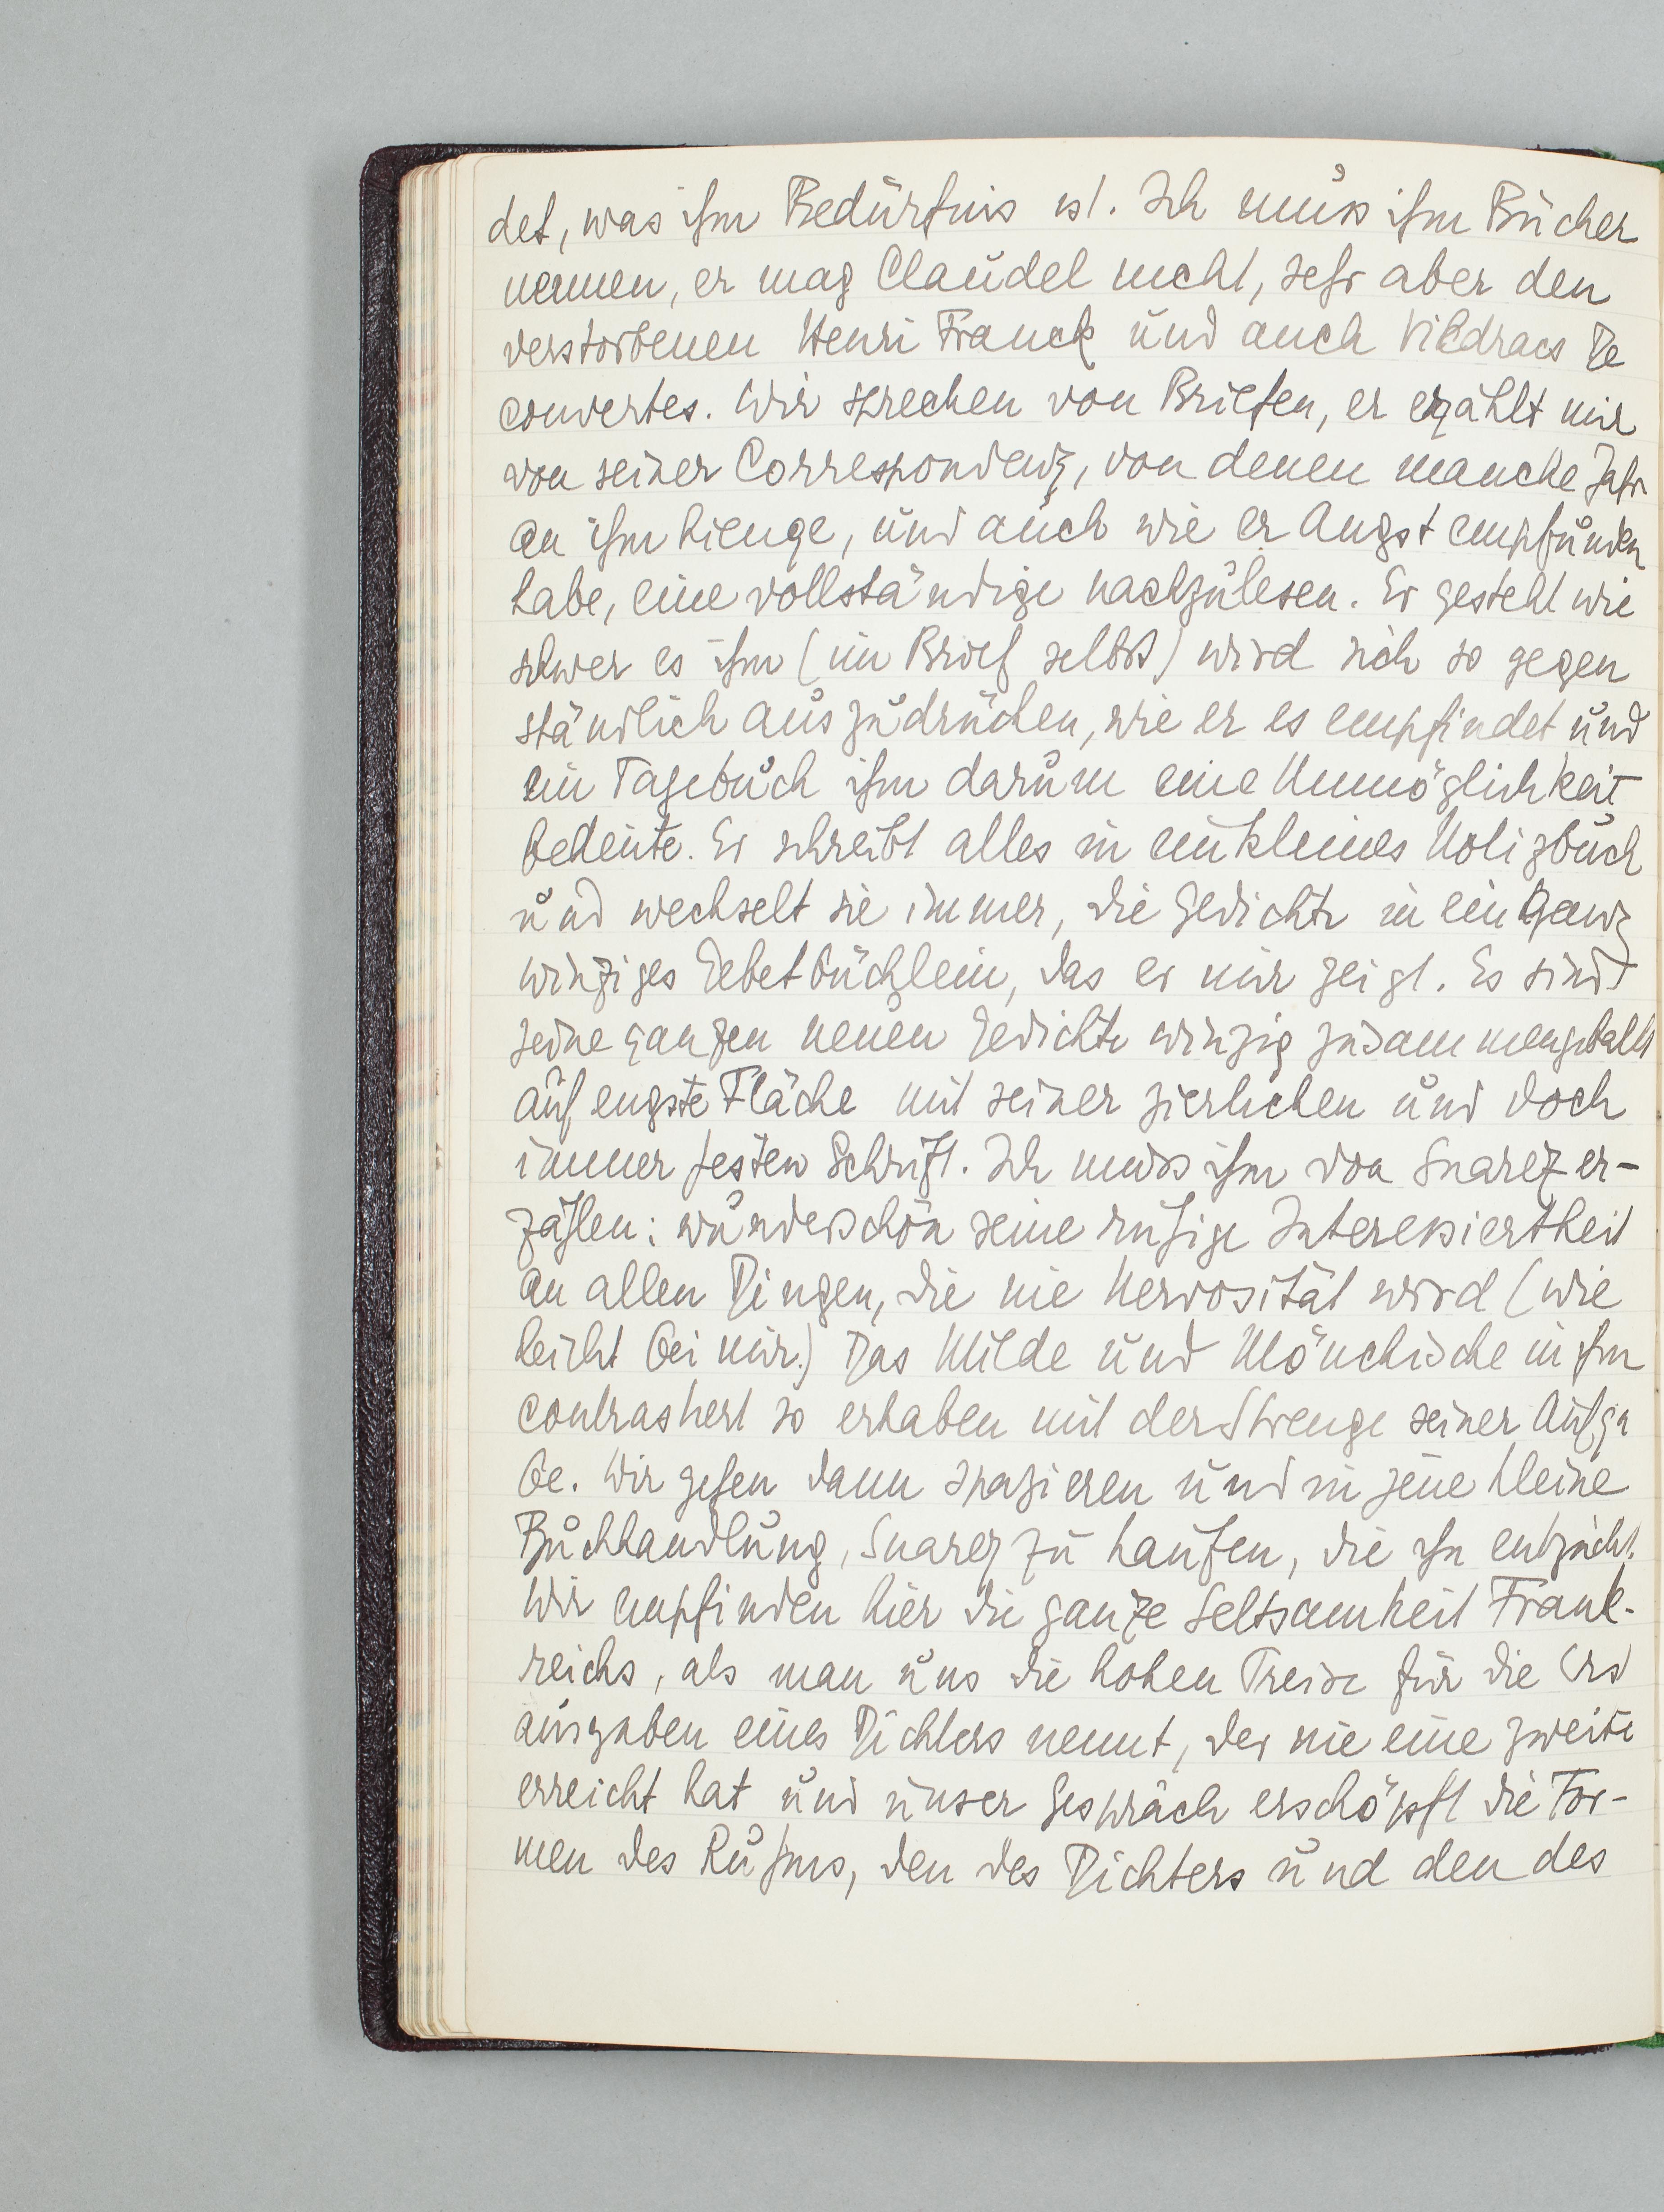 det, was ihm Bedürfnis ist. Ich muss ihm Bücher
nennen, er mag Claudel nicht, sehr aber den
verstorbenen Henri Franck und auch Vildracs De
couvertes. Wir sprechen von Briefen, er erzählt mir
von seiner Correspondenz, von denen manche Jahr
an ihm hienge, und auch wie er Angst empfunden
habe, eine vollständige nachzulesen. Er gesteht wie
schwer es ihm (im Brief selbst) wird sich so gegen
ständlich auszudrücken, wie er es empfindet und
ein Tagebuch ihm darum eine Unmöglichkeit
bedeute. Er schreibt alles in ein kleines Notizbuch
und wechselt sie immer, die Gedichte in ein ganz
winziges Gebetbüchlein, das er mir zeigt. Es sind
seine ganzen neuen Gedichte winzig zusammengeballt
auf engste Fläche mit seiner zierlichen und doch
immer festen Schrift. Ich muss ihm von Suarez er-
zählen: wunderschön seine ruhige Interessiertheit
an allen Dingen, die nie Nervosität wird (wie
leicht bei mir.) Das Milde und Mönchische in ihm
contrastiert so erhaben mit der Strenge seiner Aufga
be. Wir gehen dann spazieren und in jene kleine
Buchhandlung, Suarez zu kaufen, die ihn entzückt.
Wir empfinden hier die ganze Seltsamkeit Frank-
reichs, als man uns die hohen Preise für die Erst
ausgaben eines Dichters nennt, der nie eine zweite
erreicht hat und unser Gespräch erschöpft die For-
men des Ruhms, den des Dichters und den des